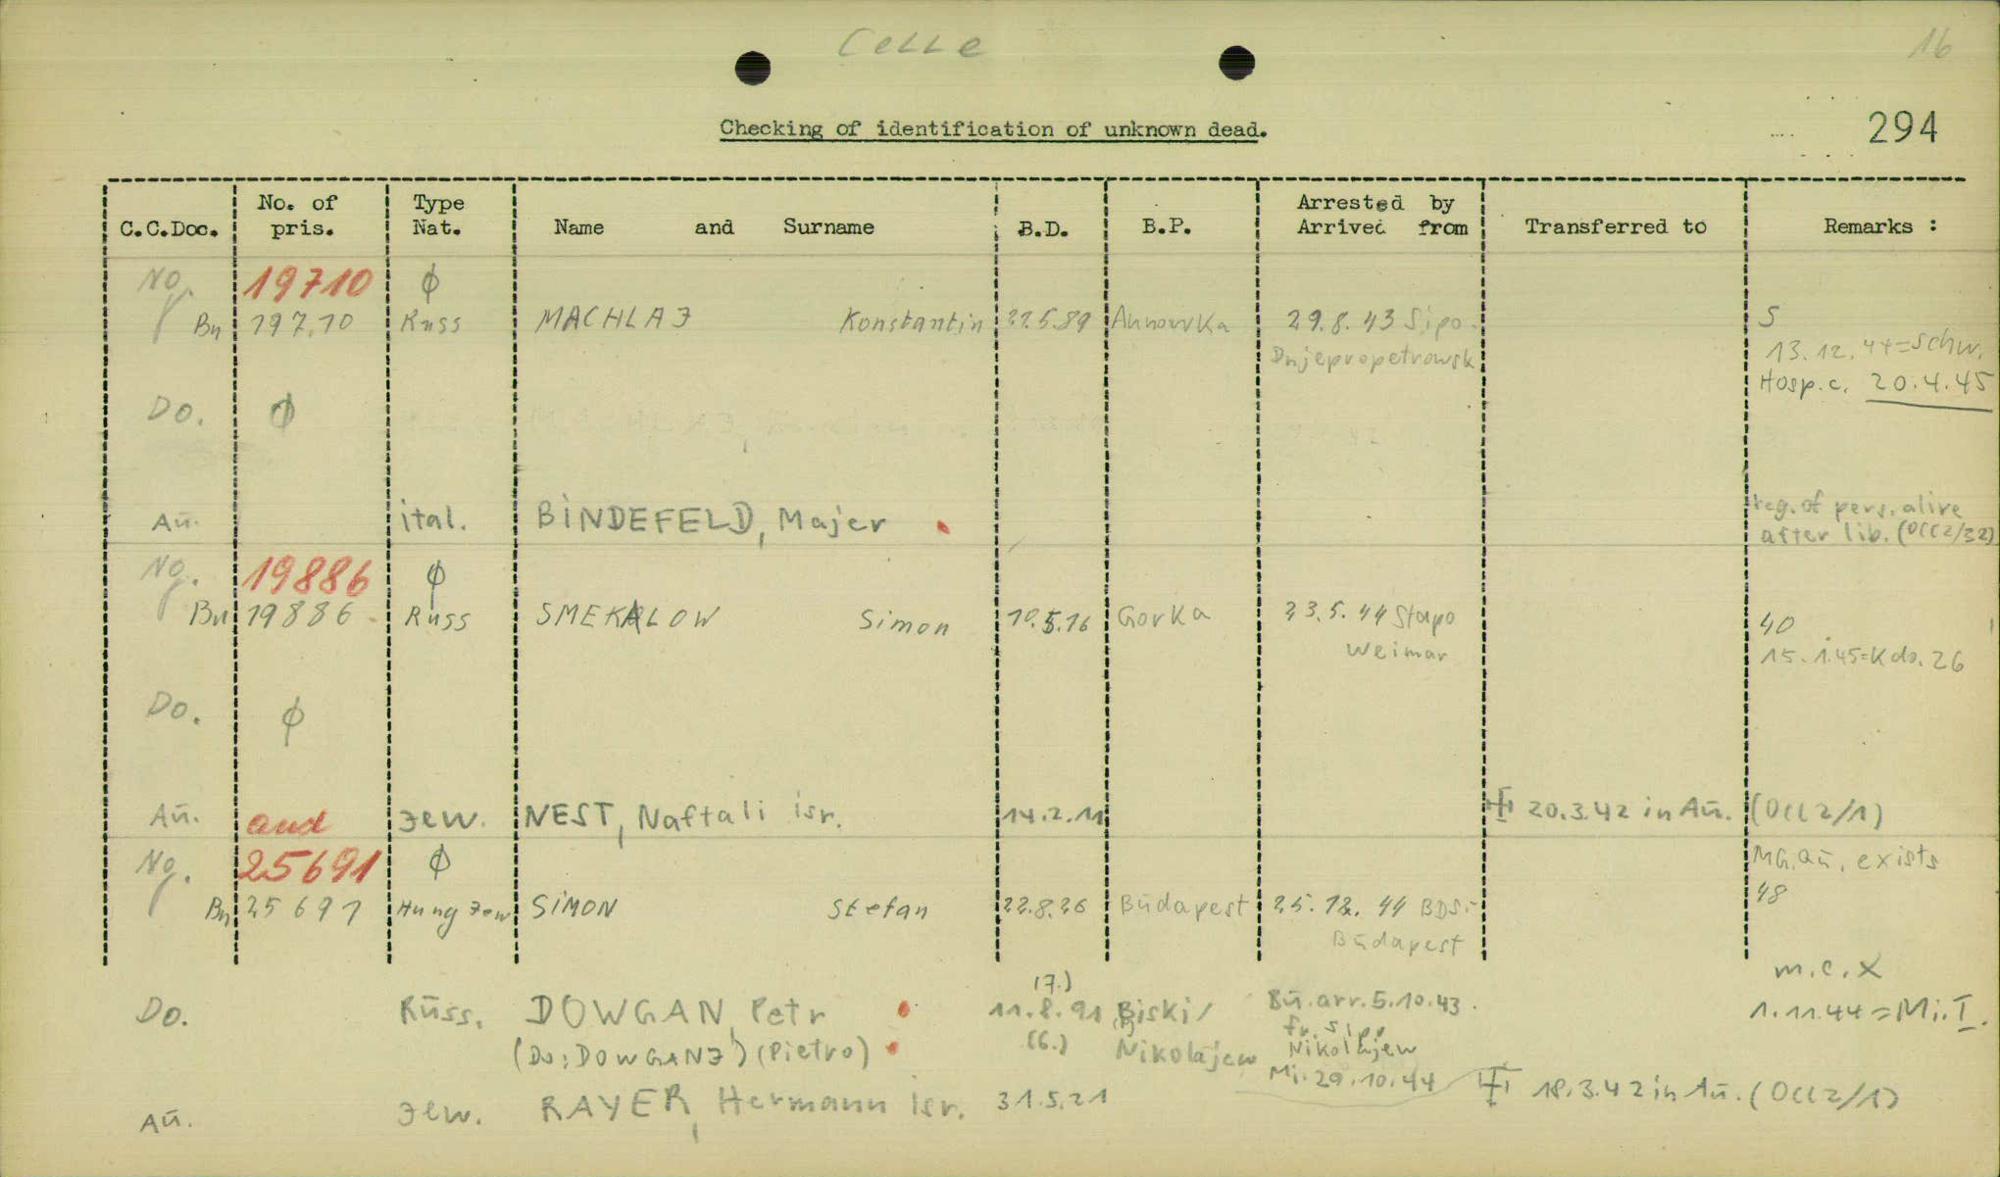 Celle
16
294
Checking of identification of unknown dead.
C.C.Doc. No. of pris. Type Nat. Name and Surname B.D. B.P. Arrested by Arrived from Transferred to Remarks :
Ng. 19710 ϕ
Bu 197.10 Russ MACHLAJ Konstantin 22.5.89 Annowka 29.8.43 Sipo. S
Dnjepropetrowsk 13.12.44=Schw.
Hosp.c. 20.4.45
Do. ϕ
Au. ital. BINDEFELD, Majer reg. of pers. alive
after lib. (OCC2/32)
Ng. 19886 ϕ
Bu 19886 Russ SMEKALOW Simon 10.5.16 Gorka 23.5.44 Stapo 40
Weimar 15.1.45=Kdo. 26
Do. ϕ
Aū. and Jew. NEST, Naftali isr. 14.2.11 20.3.42 in Aū. (OCC2/1)
Ng. 25691 ϕ MG. aū. exists
Bu 25691 Hung Jew SIMON Stefan 22.8.26 Būdapest 25.12.44 BDS.- 48
Būdapest
m.c.X
(7.)
Do. Rūss. DOWGAN, Petr 11.8.91 Biski/ Bū. arr. 5.10.43. 1.11.44=Mi.I.
fr. Sipo
(Do: DOWGANJ) (Pietro) (6.) Nikolajew Nikolajew
Mi. 29.10.44
Aū. Jew. RAYER, Hermann Isr. 31.5.21 18.3.42 in Aū. (OCC2/1)